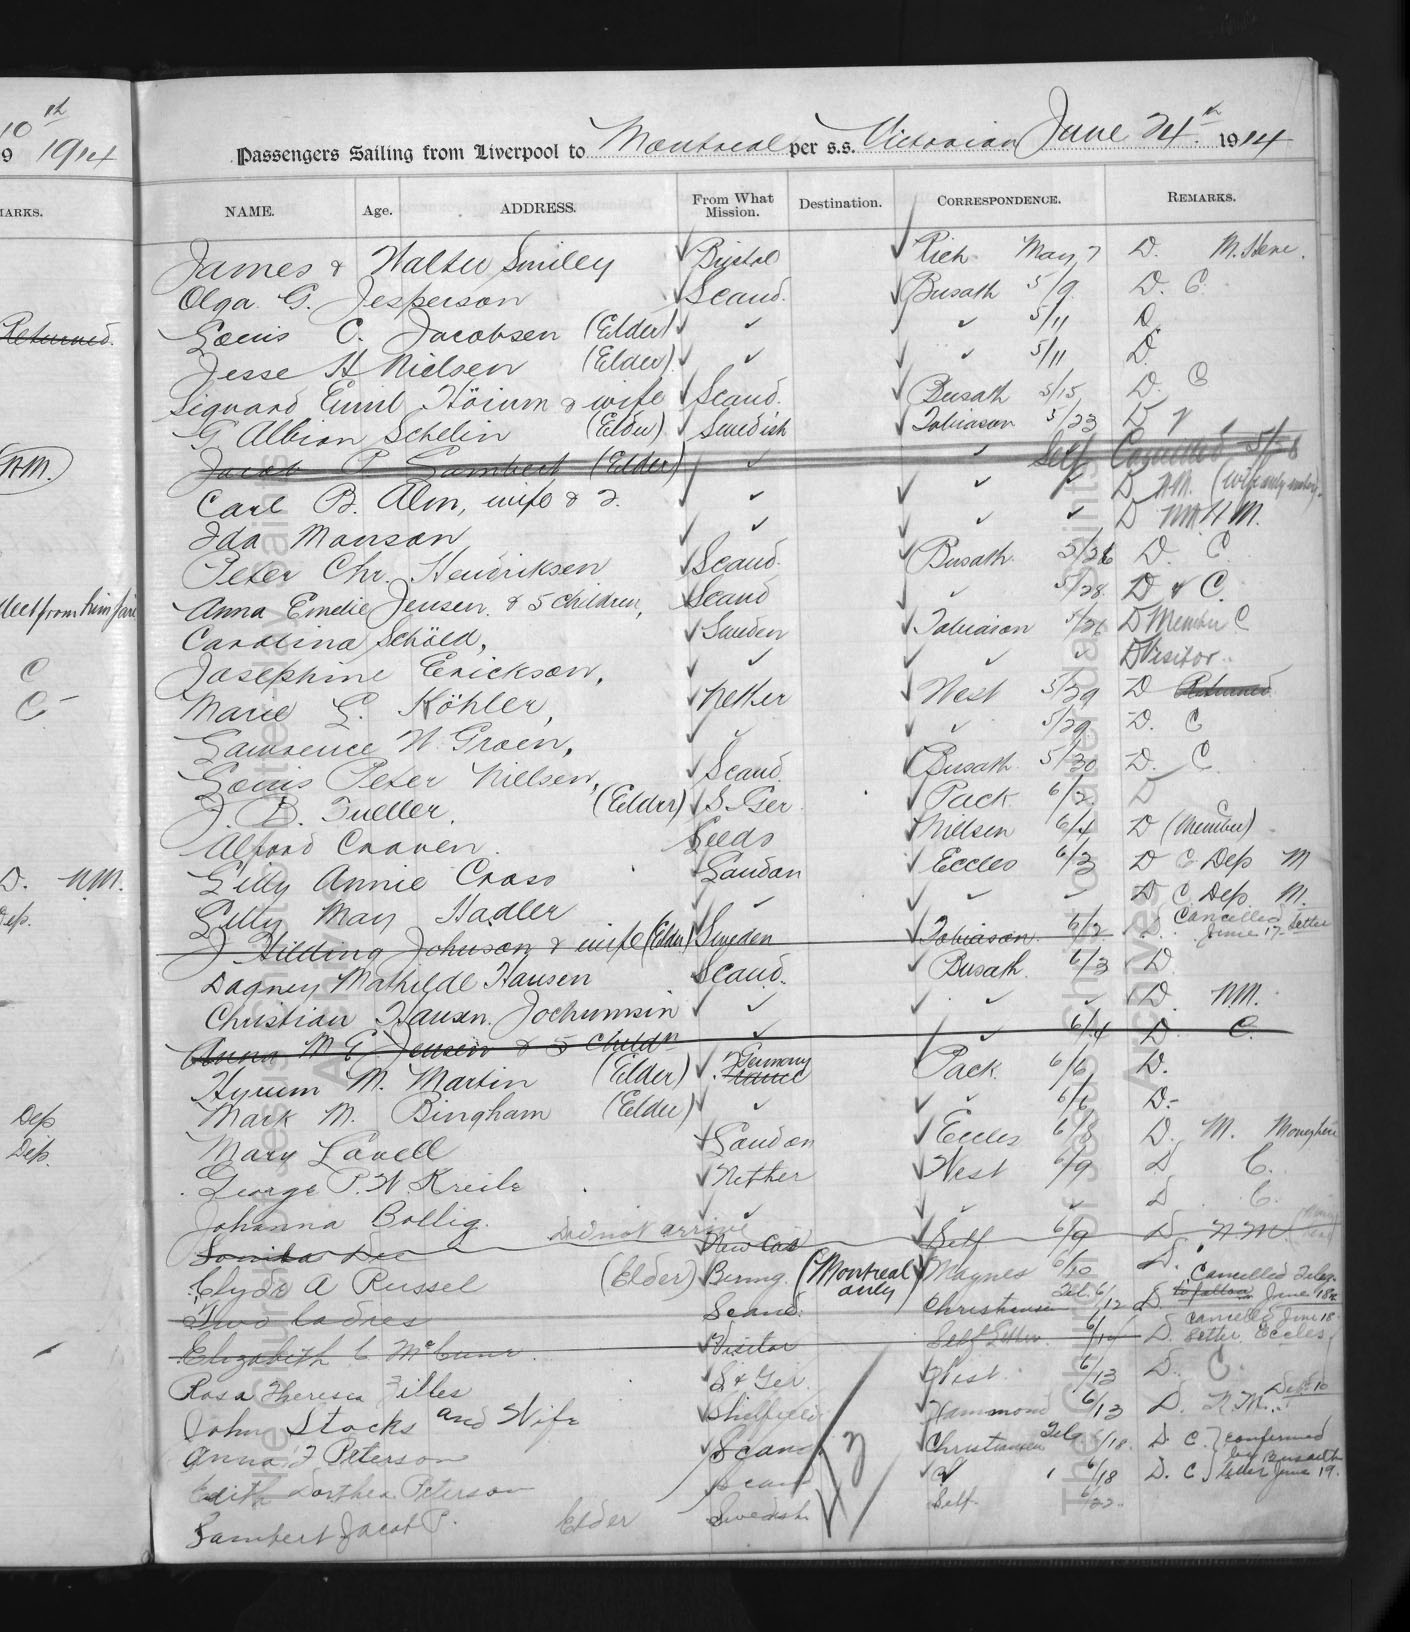 10th
9 1914
MARKS.
Returned.
N.M.
C
C
D. N.M.
Dep.
Dep
Dep.
Passengers Sailing from Liverpool to Montreal per s.s. Victorian June 24th 1914
NAME. Age. ADDRESS. From What Mission. Destination. CORRESPONDENCE. REMARKS.
James & Walter Smiley Bristol Rich May 7 D. M. Here.
Olga G. Jesperson Scand. Busath 5/9 D. C.
Louis C. Jacobsen (Elder) ✓ ✓ 5/11 D.
Jesse H Nielsen (Elder) ✓ ✓ 5/11 D.
Sigvard Emil Höium & wife Scand. Busath 5/15 D. C
G Albion Schelin (Elder) Swedish Tobiason 5/23 D V
Jacob P Lambert (Elder) ✓ ✓ Self Cancelled 5/28
Carl B. Alm, wife & 2. ✓ ✓ ✓ D N.M. (wife only member).
Ida Monson ✓ ✓ ✓ D NM H M.
Peter Chr. Hendriksen Scand. Busath 5/26 D. C
Anna Emelie Jensen & 5 children, Scand ✓ 5/28 D & C.
Carolina Schöld, Sweden Tobiason 5/26 D Member C
Josephine Erickson, ✓ ✓ ✓ D Visitor.
Marie G. Köhler, Nether West 5/29 D Returned
Lawrence W. Groen, ✓ ✓ 5/29 D. C
Louis Peter Nielsen, Scand. Busath 5/30 D. C
J. B. Fueller, (Elder) S. Ger. Pack 6/2 D
Alford Craven. Leeds Nielsen 6/4 D (Member) C
Lilly Annie Cross London Eccles 6/3 D C. Dep M
Lilly May Hadler ✓ ✓ ✓ D C. Dep. M.
J Hilding Johnson & wife (Elder) Sweden Tobiason 6/2 D. Cancelled June 17 letter
Dagney Mathilde Hansen Scand. Busath. 6/3 D.
Christian Hansen Jochumsin ✓ ✓ ✓ D. N.M.
Anna M E Jensen & 5 Childn ✓ ✓ 6/4 D C.
Hyrum M. Martin (Elder) Germany Pack. 6/6 D.
Mark M. Bingham (Elder) ✓ ✓ 6/6 D.
Mary Lavell London Eccles 6/8 D. M. Money here
George P. W. Kreile Nether West 6/9 D C.
Johanna Bollig. ✓ ✓ ✓ D C.
Did not arrive New Cas Self 6/9 D N M
Clyde A Russel (Elder) Birmg. (Montreal only) Maynes 6/10 D.
Two Ladies Scand. Christiansen Tel. 6/12 D. to follow Cancelled Teleg. June 18th
Elizabeth C McCune. Visitor Self Letter 6/14 D. cancelled June 18 letter Eccles
Rosa Theresia Zilles S & Ger. West 6/13 D. C.
John Stocks and Wife Sheffield Hammond 6/13 D. N.M.
Anna F Peterson Scand 2 Christiansen Tele 6/18. D C. } confirmed
Edith Dorthea Peterson Scand 6/18 D. C } by Busath letter June 19.
Lambert Jacob P. Elder Swedish Self 6/22.